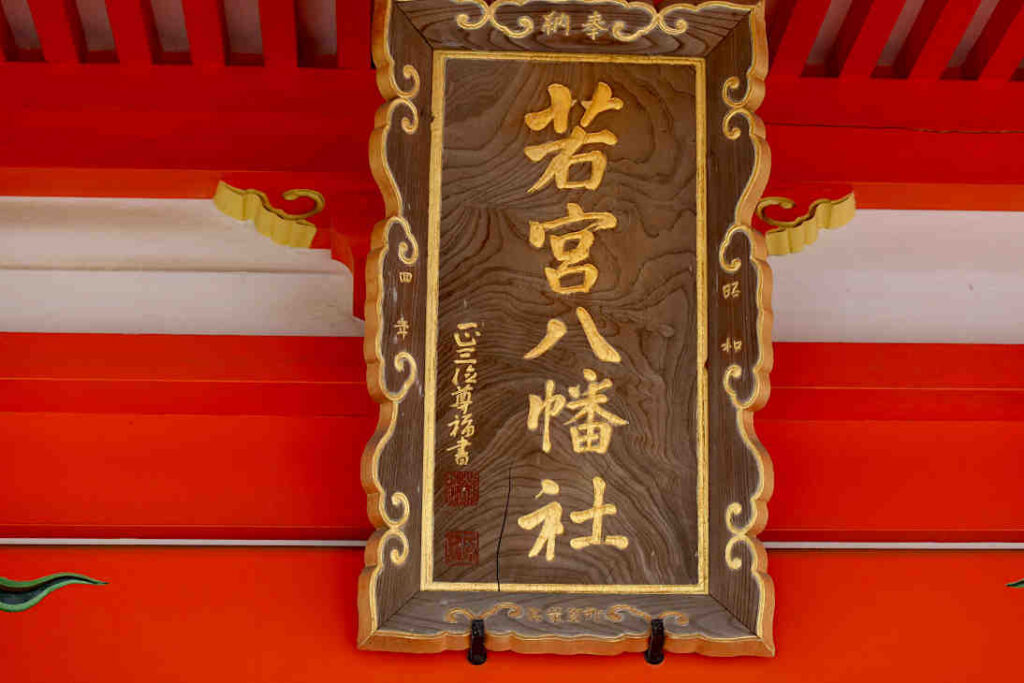 奉納
若宮八幡社
正三位尊福書
昭和
四年